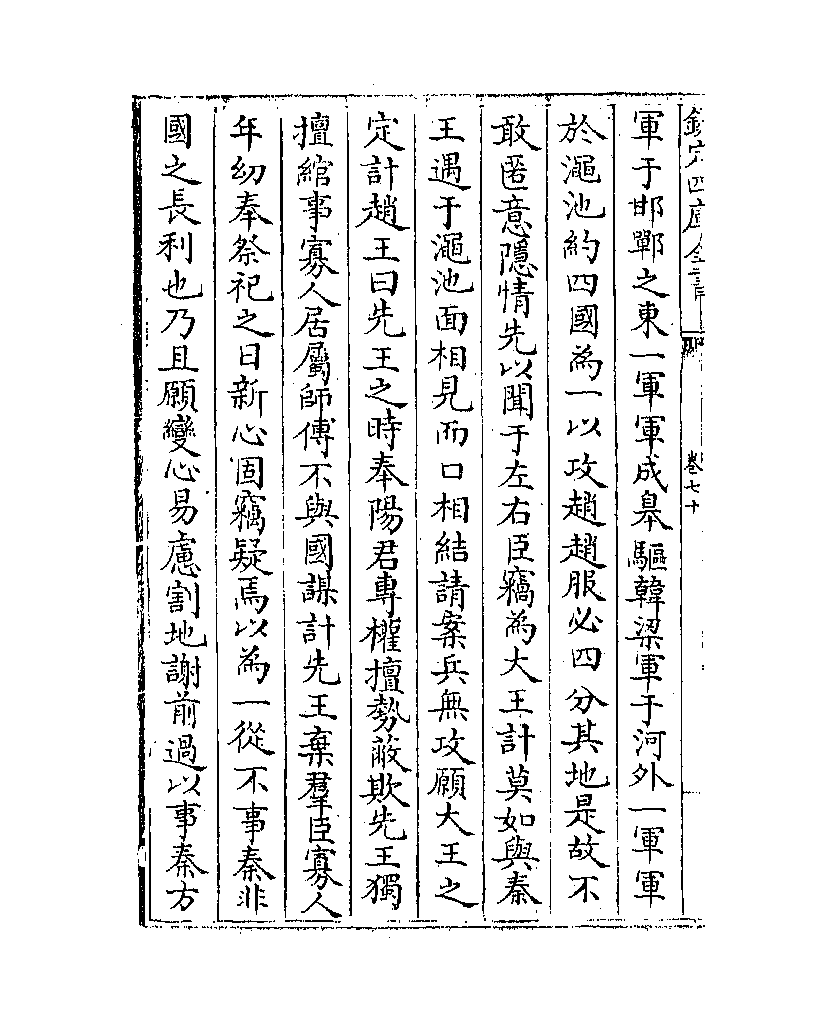 欽定四庫全書
卷七十
軍于邯鄲之東一軍軍成臯驅韓梁軍于河外一軍軍
於澠池約四國為一以攻趙趙服必四分其地是故不
敢匿意隱情先以聞于左右臣竊為大王計莫如與秦
王遇于澠池面相見而口相結請案兵無攻願大王之
定計趙王曰先王之時奉陽君專權擅勢蔽欺先王獨
擅綰事寡人居屬師傅不與國謀計先王棄羣臣寡人
年幼奉祭祀之日新心固竊疑焉以為一從不事秦非
國之長利也乃且願變心易慮割地謝前過以事秦方